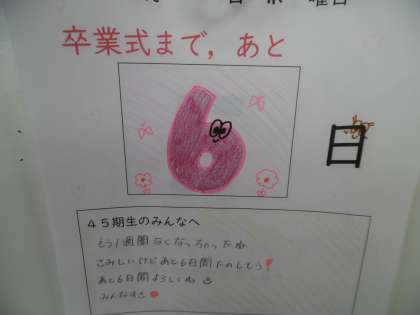 日
曜日
卒業式まで，あと
6
日
４５期生のみんなへ
もう1週間なくなっちゃったね
さみしいけどあと6日間たのしもう!
あと6日間よろしいね
みんなすき